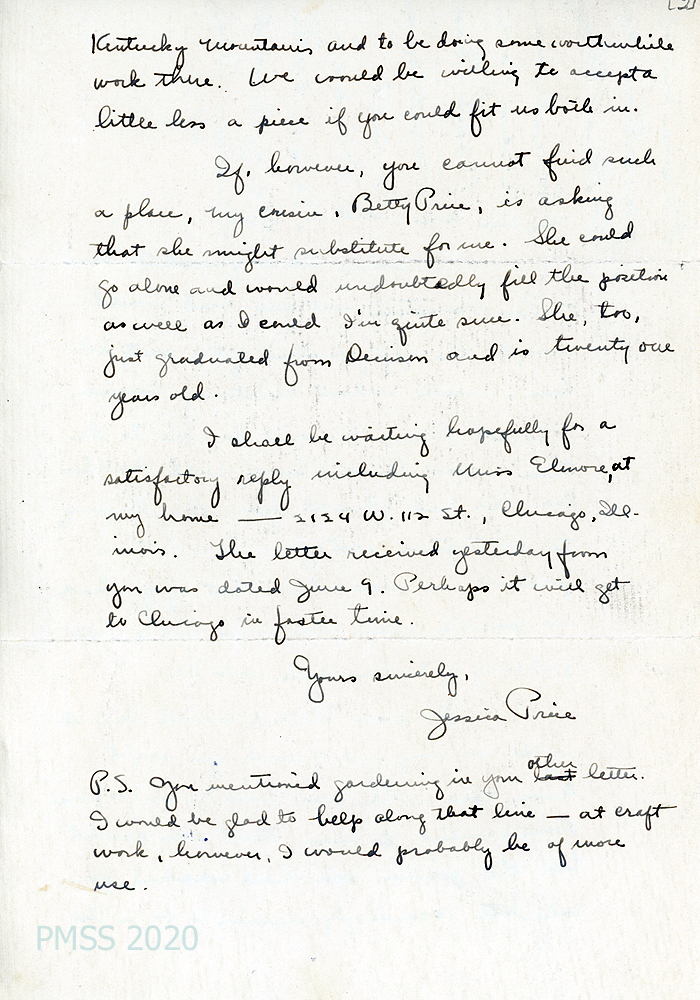 [2]
Kentucky Mountains and to be doing some worthwhile
work there. We would be willing to accept a
little less a piece if you could fit us both in.
If, however, you cannot find such
a place, my cousin, Betty Price, is asking
that she might substitute for me. She could
go alone and would undoubtedly fill the position
as well as I could I'm quite sure. She, too,
just graduated from Denison and is twenty one
years old.
I shall be waiting hopefully for a
satisfactory reply including Miss Elmore, at
my home — 2124 W. 112 St., Chicago, Ill-
inois. The letter received yesterday from
you was dated June 9. Perhaps it will get
to Chicago in faster time.
Yours sincerely,
Jessica Price
other
P.S. You mentioned gardening in your last letter.
I would be glad to help along that line — at craft
work, however, I would probably be of more
use.
PMSS 2020